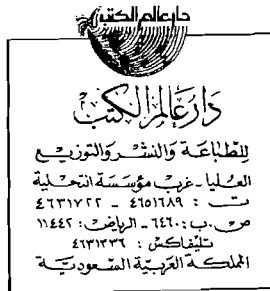 دار عالم الكتب
دَار عَالم الكتب
للطباعَة وَالنشـر وَالتوزيـع
العـليا - غرب مؤسسَة التحـلية
ت : ٤٦٥١٦٨٩ - ٤٦٣١٧٢٢
ص.ب : ٦٤٦٠ - الرياض : ١١٤٤٢
تليفاكس : ٤٦٣١٣٣٦
المملكـة العَربيَّـة السّعوديَّـة